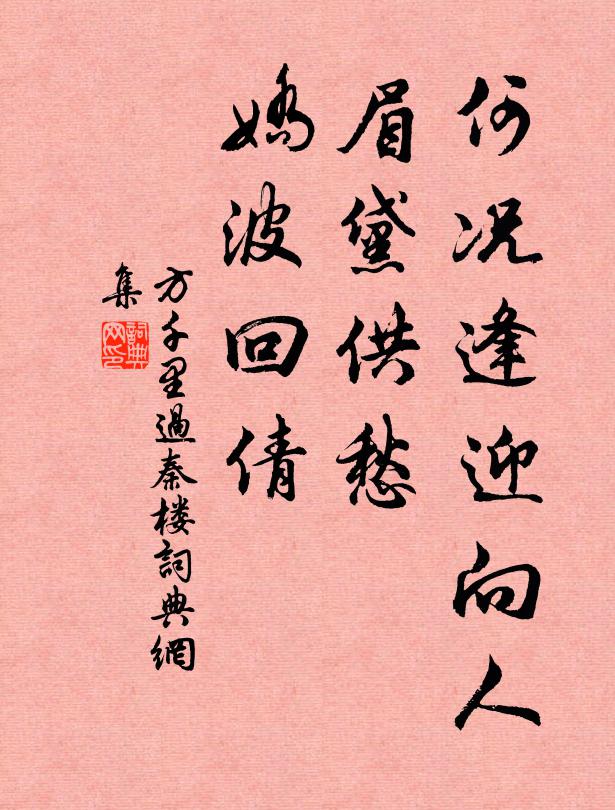 何况逢迎向人
眉黛供愁
娇波回倩
方千里過秦楼詞典網
集
詞典
网印